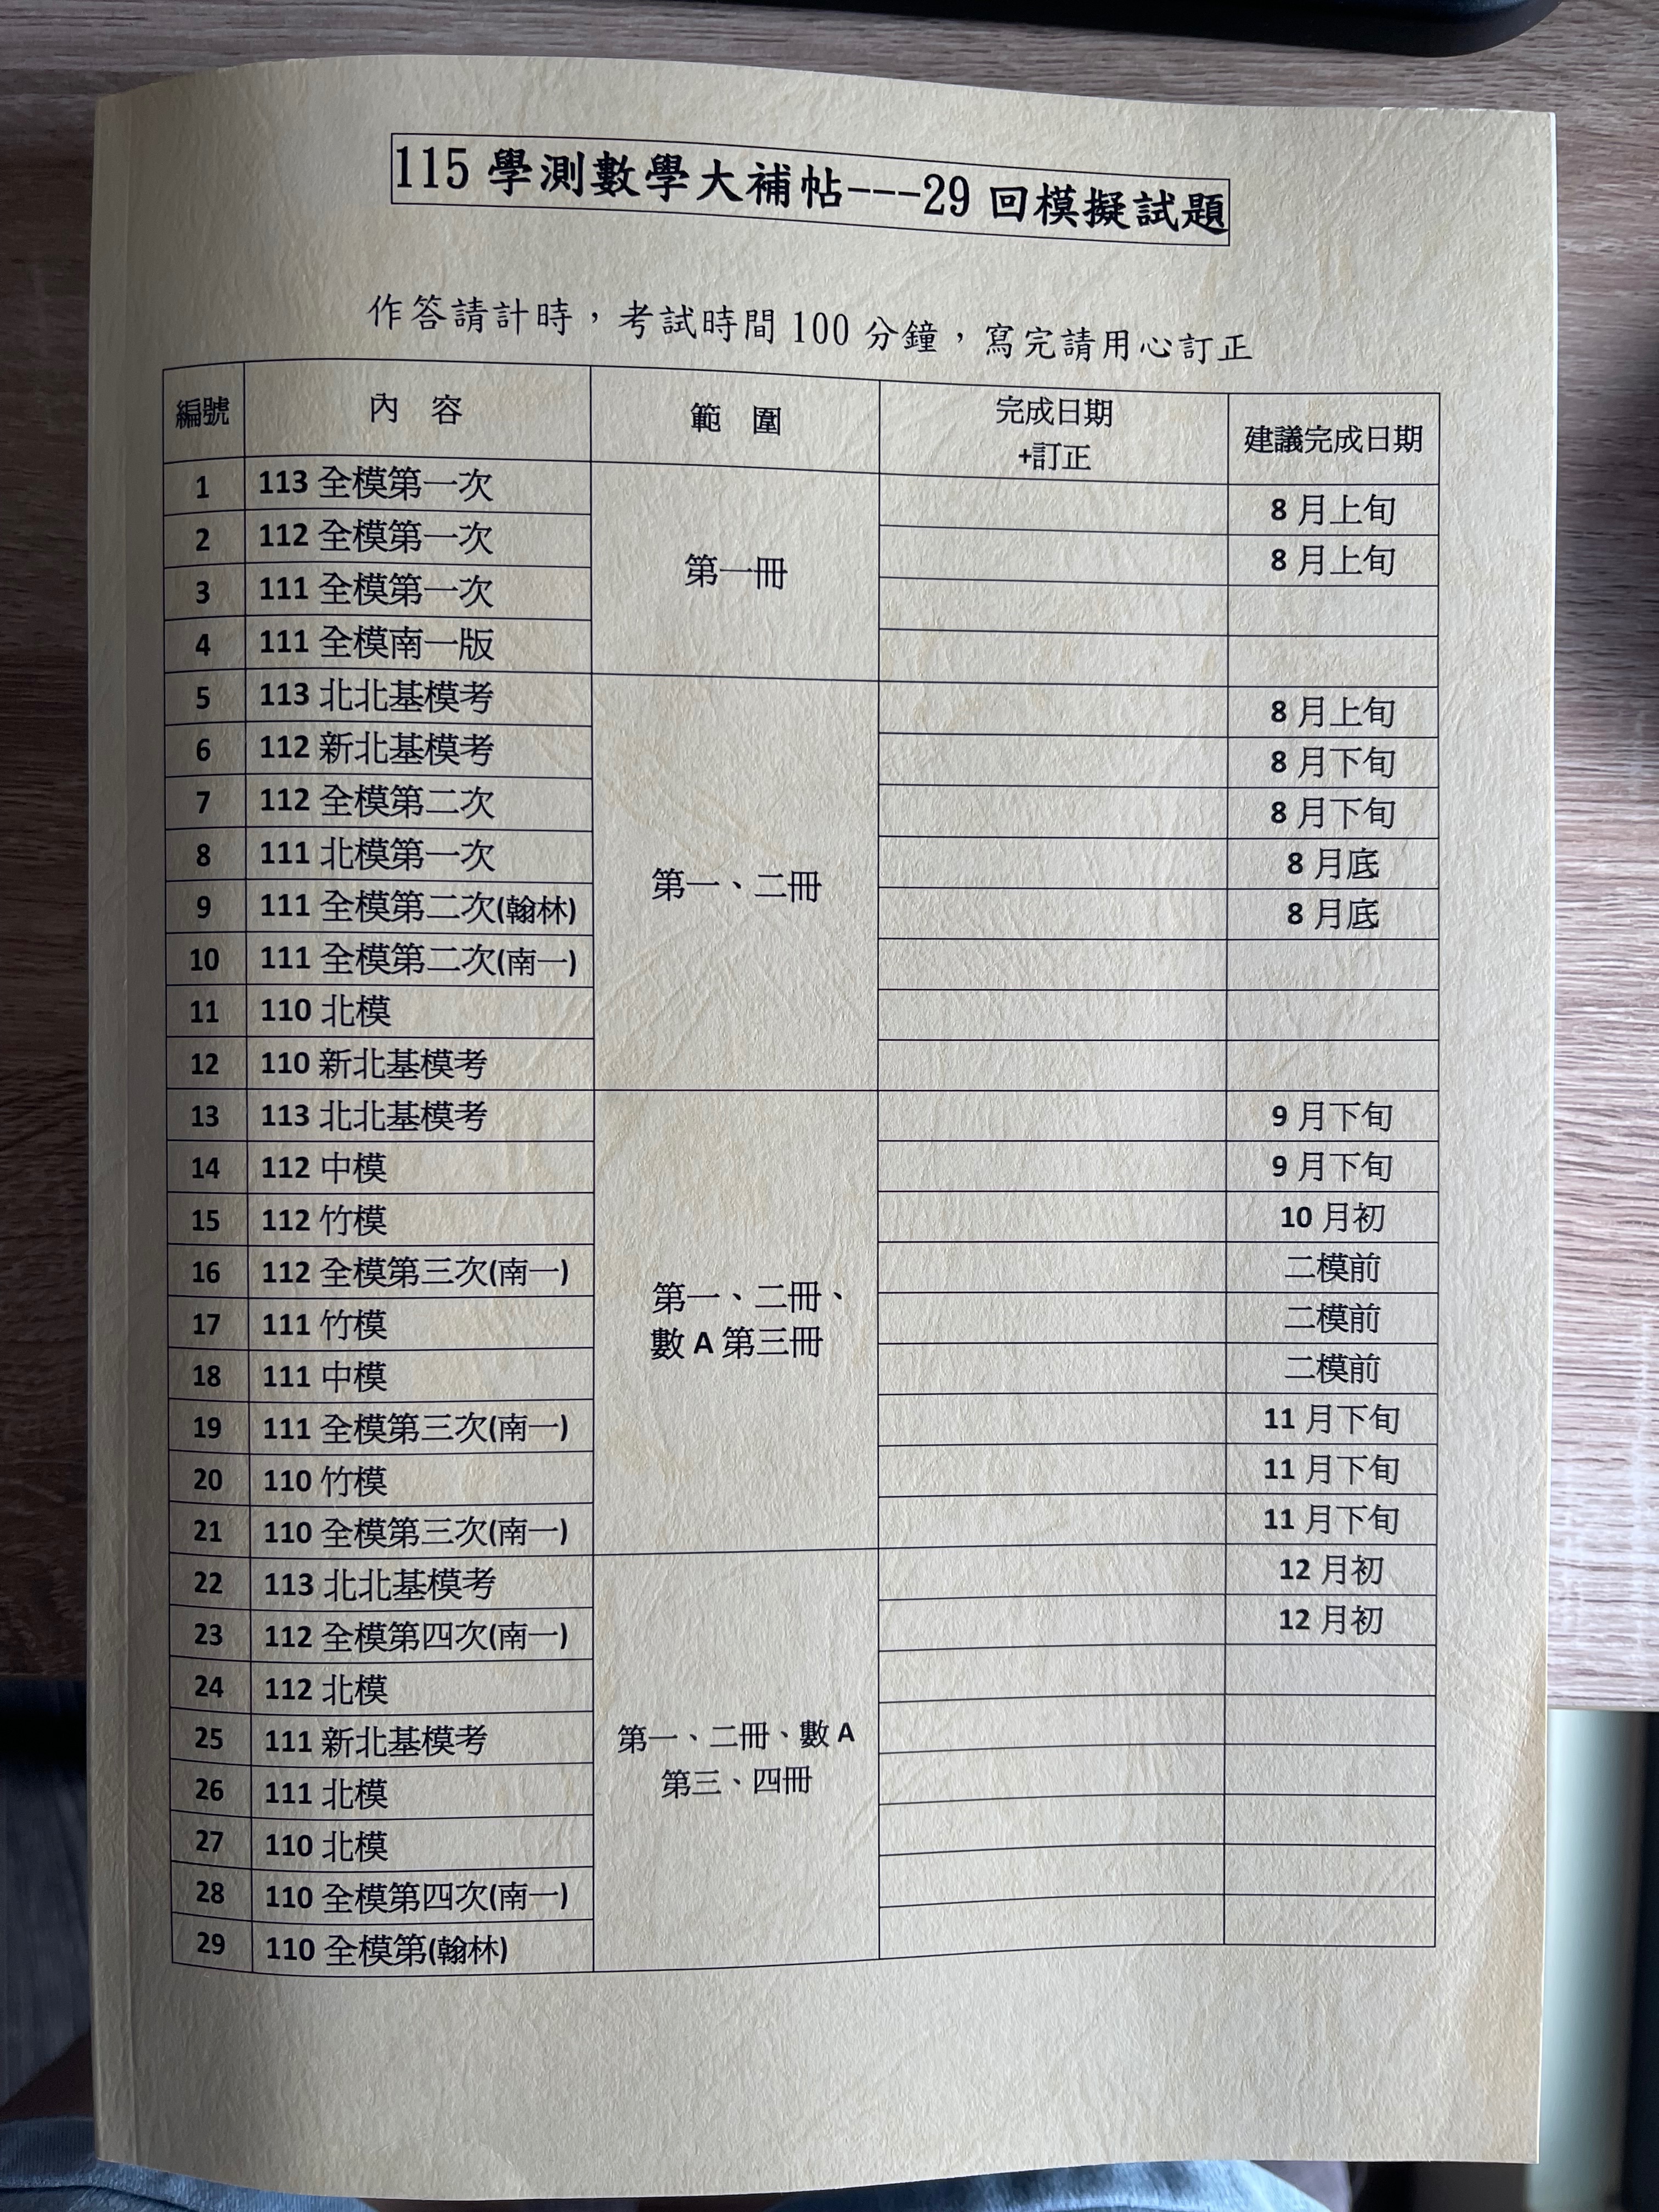 115 學測數學大補帖---29 回模擬試題
作答請計時，考試時間 100 分鐘，寫完請用心訂正
編號 內 容 範 圍 完成日期 +訂正 建議完成日期
1 113 全模第一次 8 月上旬
2 112 全模第一次 8 月上旬
第一冊
3 111 全模第一次
4 111 全模南一版
5 113 北北基模考 8 月上旬
6 112 新北基模考 8 月下旬
7 112 全模第二次 8 月下旬
8 111 北模第一次 8 月底
第一、二冊
9 111 全模第二次(翰林) 8 月底
10 111 全模第二次(南一)
11 110 北模
12 110 新北基模考
13 113 北北基模考 9 月下旬
14 112 中模 9 月下旬
15 112 竹模 10 月初
16 112 全模第三次(南一) 二模前
第一、二冊、
數 A 第三冊
17 111 竹模 二模前
18 111 中模 二模前
19 111 全模第三次(南一) 11 月下旬
20 110 竹模 11 月下旬
21 110 全模第三次(南一) 11 月下旬
22 113 北北基模考 12 月初
23 112 全模第四次(南一) 12 月初
24 112 北模
25 111 新北基模考
第一、二冊、數 A
第三、四冊
26 111 北模
27 110 北模
28 110 全模第四次(南一)
29 110 全模第(翰林)